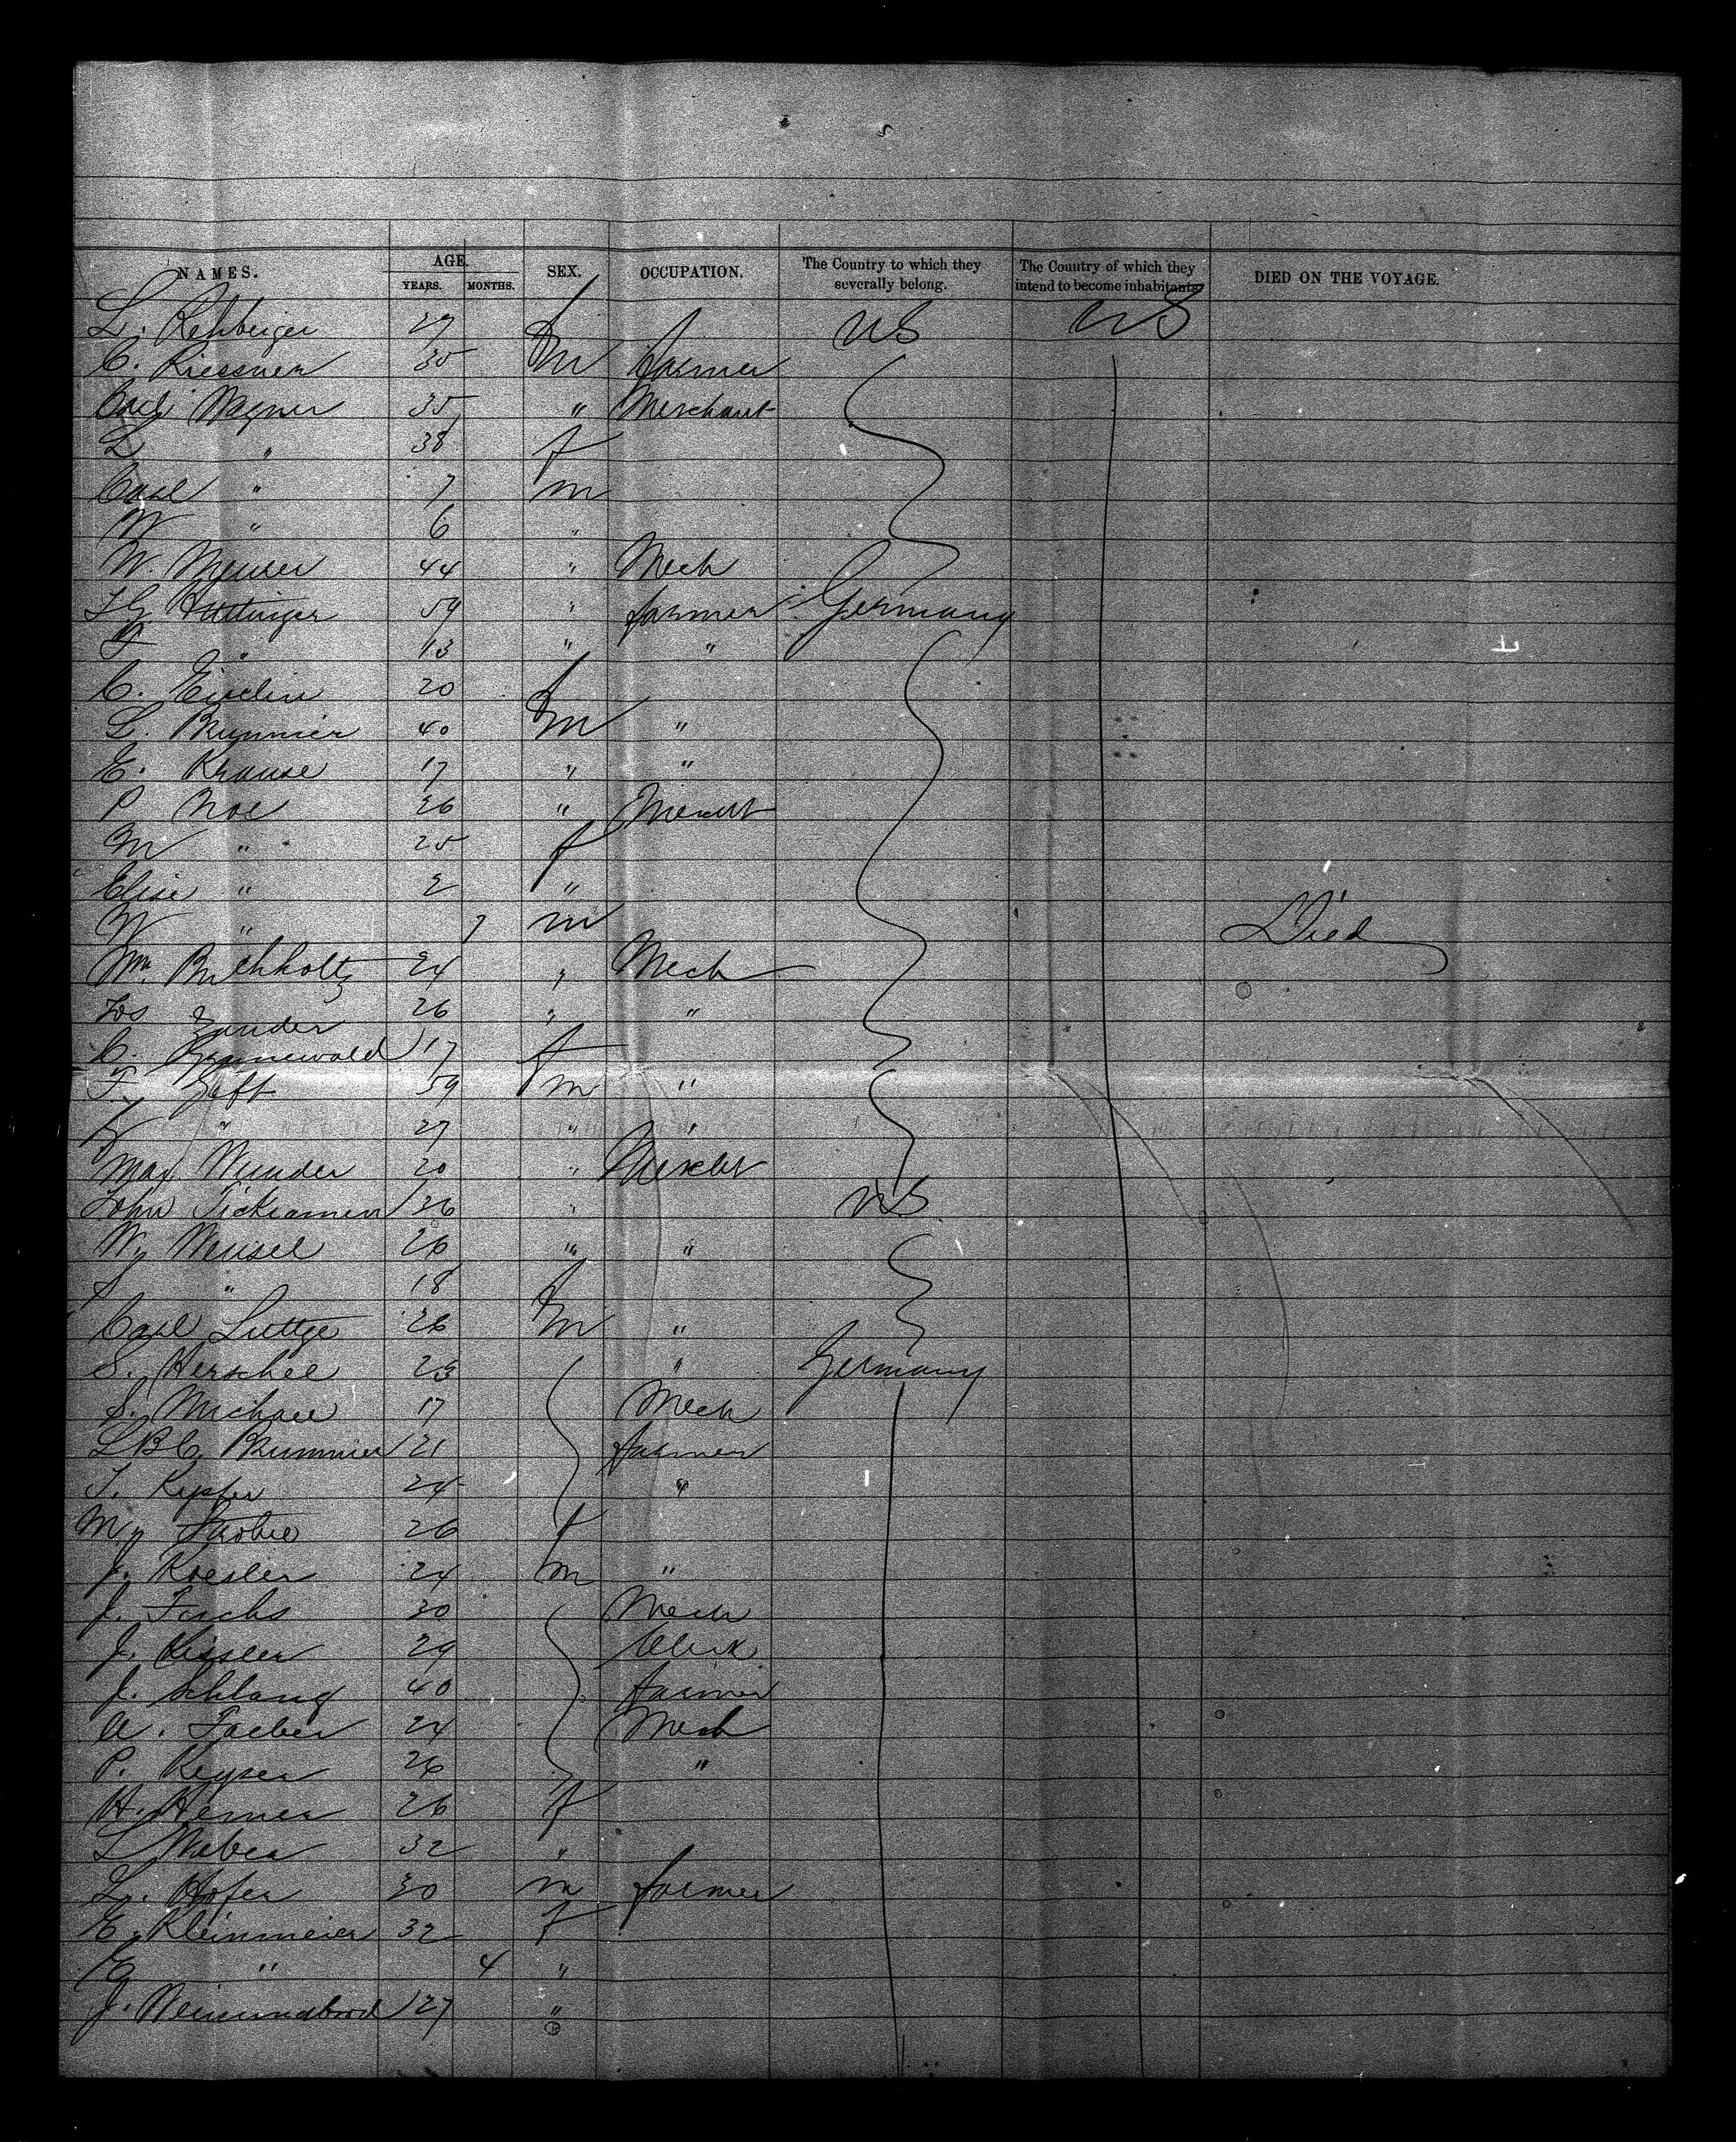 NAMES. AGE. YEARS. MONTHS. SEX. OCCUPATION. The Country to which they severally belong. The Country of which they intend to become inhabitants. DIED ON THE VOYAGE.
L. Rehberger 29 f US US
C. Riessner 35 m farmer
Carl Wagner 35 " Merchant
L " 38 f
Carl " 7 m
W " 6 "
W. 44 " Mech
59 " farmer Germany
F " 13 " "
C. 20 f
L. Brunnier 40 m "
E. Krause 17 " "
P Noe 26 " Mercht
M " 25 f
Elise " 2 "
W " 7 m Died
Wm. Buchholtz 24 " Mech
Jos Zander 26 " "
C. Grunewald 17 f
F. 59 m "
" 27 " "
Max Wunder 20 " Mercht
John 36 " US
W. Meusel 26 " "
S " 18 f
Carl Luttge 26 m "
S. Herschel 23 " Germany
S. Michael 17 Mech
L B C Brummer 21 farmer
24 "
M. 26 f
J. Koesler 24 m "
J. Fuchs 30 Mech
J. Kissler 29 Clerk
J. Schlang 40 farmer
A. Faeber 24 Mech
P. Keyser 26 "
H. 26 f
L Weber 32 "
L. Hofer 30 m farmer
E. Kleinmeier 32 f
E " 4 "
J. 27 "